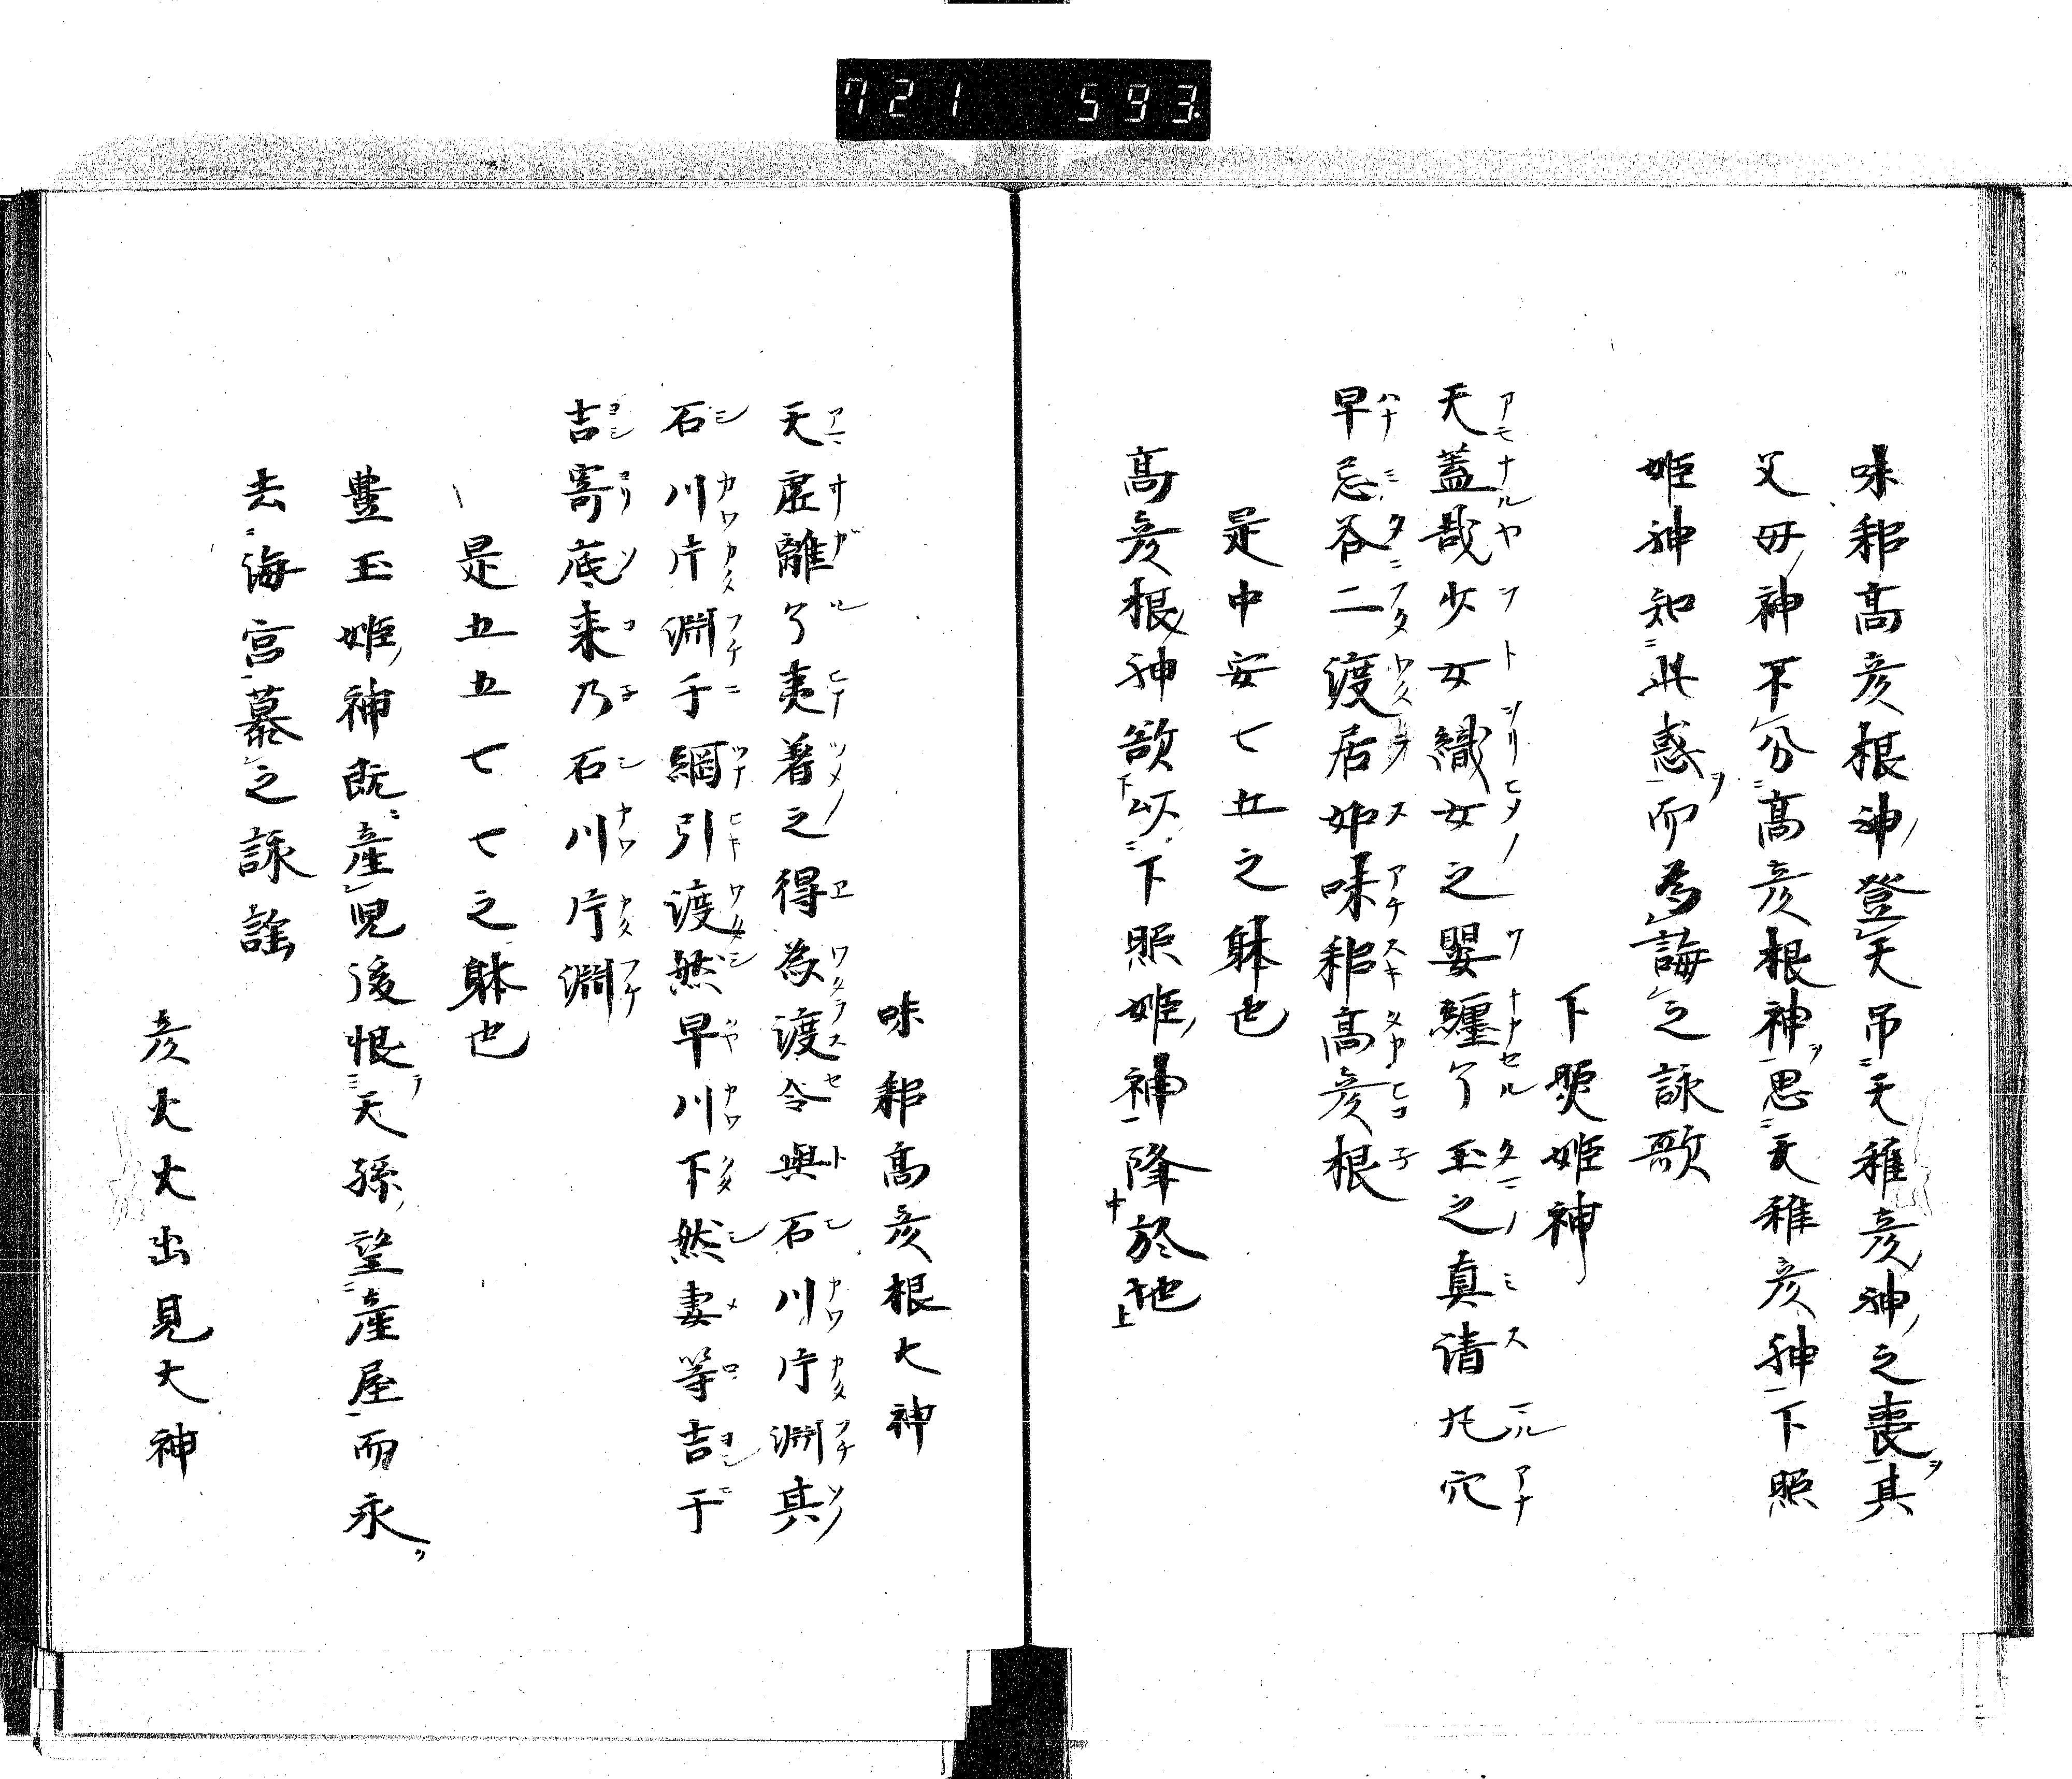 721 593.
味耜高彦根神登天吊天稚彦神之喪其
父母神不分高彦根神思天稚彦神下照
姫神知此惑而為誨之詠歌
下照姫神
天蓋哉少女織女之嬰纏了玉之真清丸穴
早忌谷二渡居如味耜高彦根
是中安七五之躰也
高彦根神欲以下照姫神降於地
味耜高彦根大神
天疎離了夷着之得為渡令與石川片淵其
石川片淵于綱引渡然早川下然妻等吉于
吉寄底来乃石川片淵
是五五七七之躰也
豊玉姫神既産児後恨天孫望産屋而永
去海宮慕之詠謡
彦火火出見大神